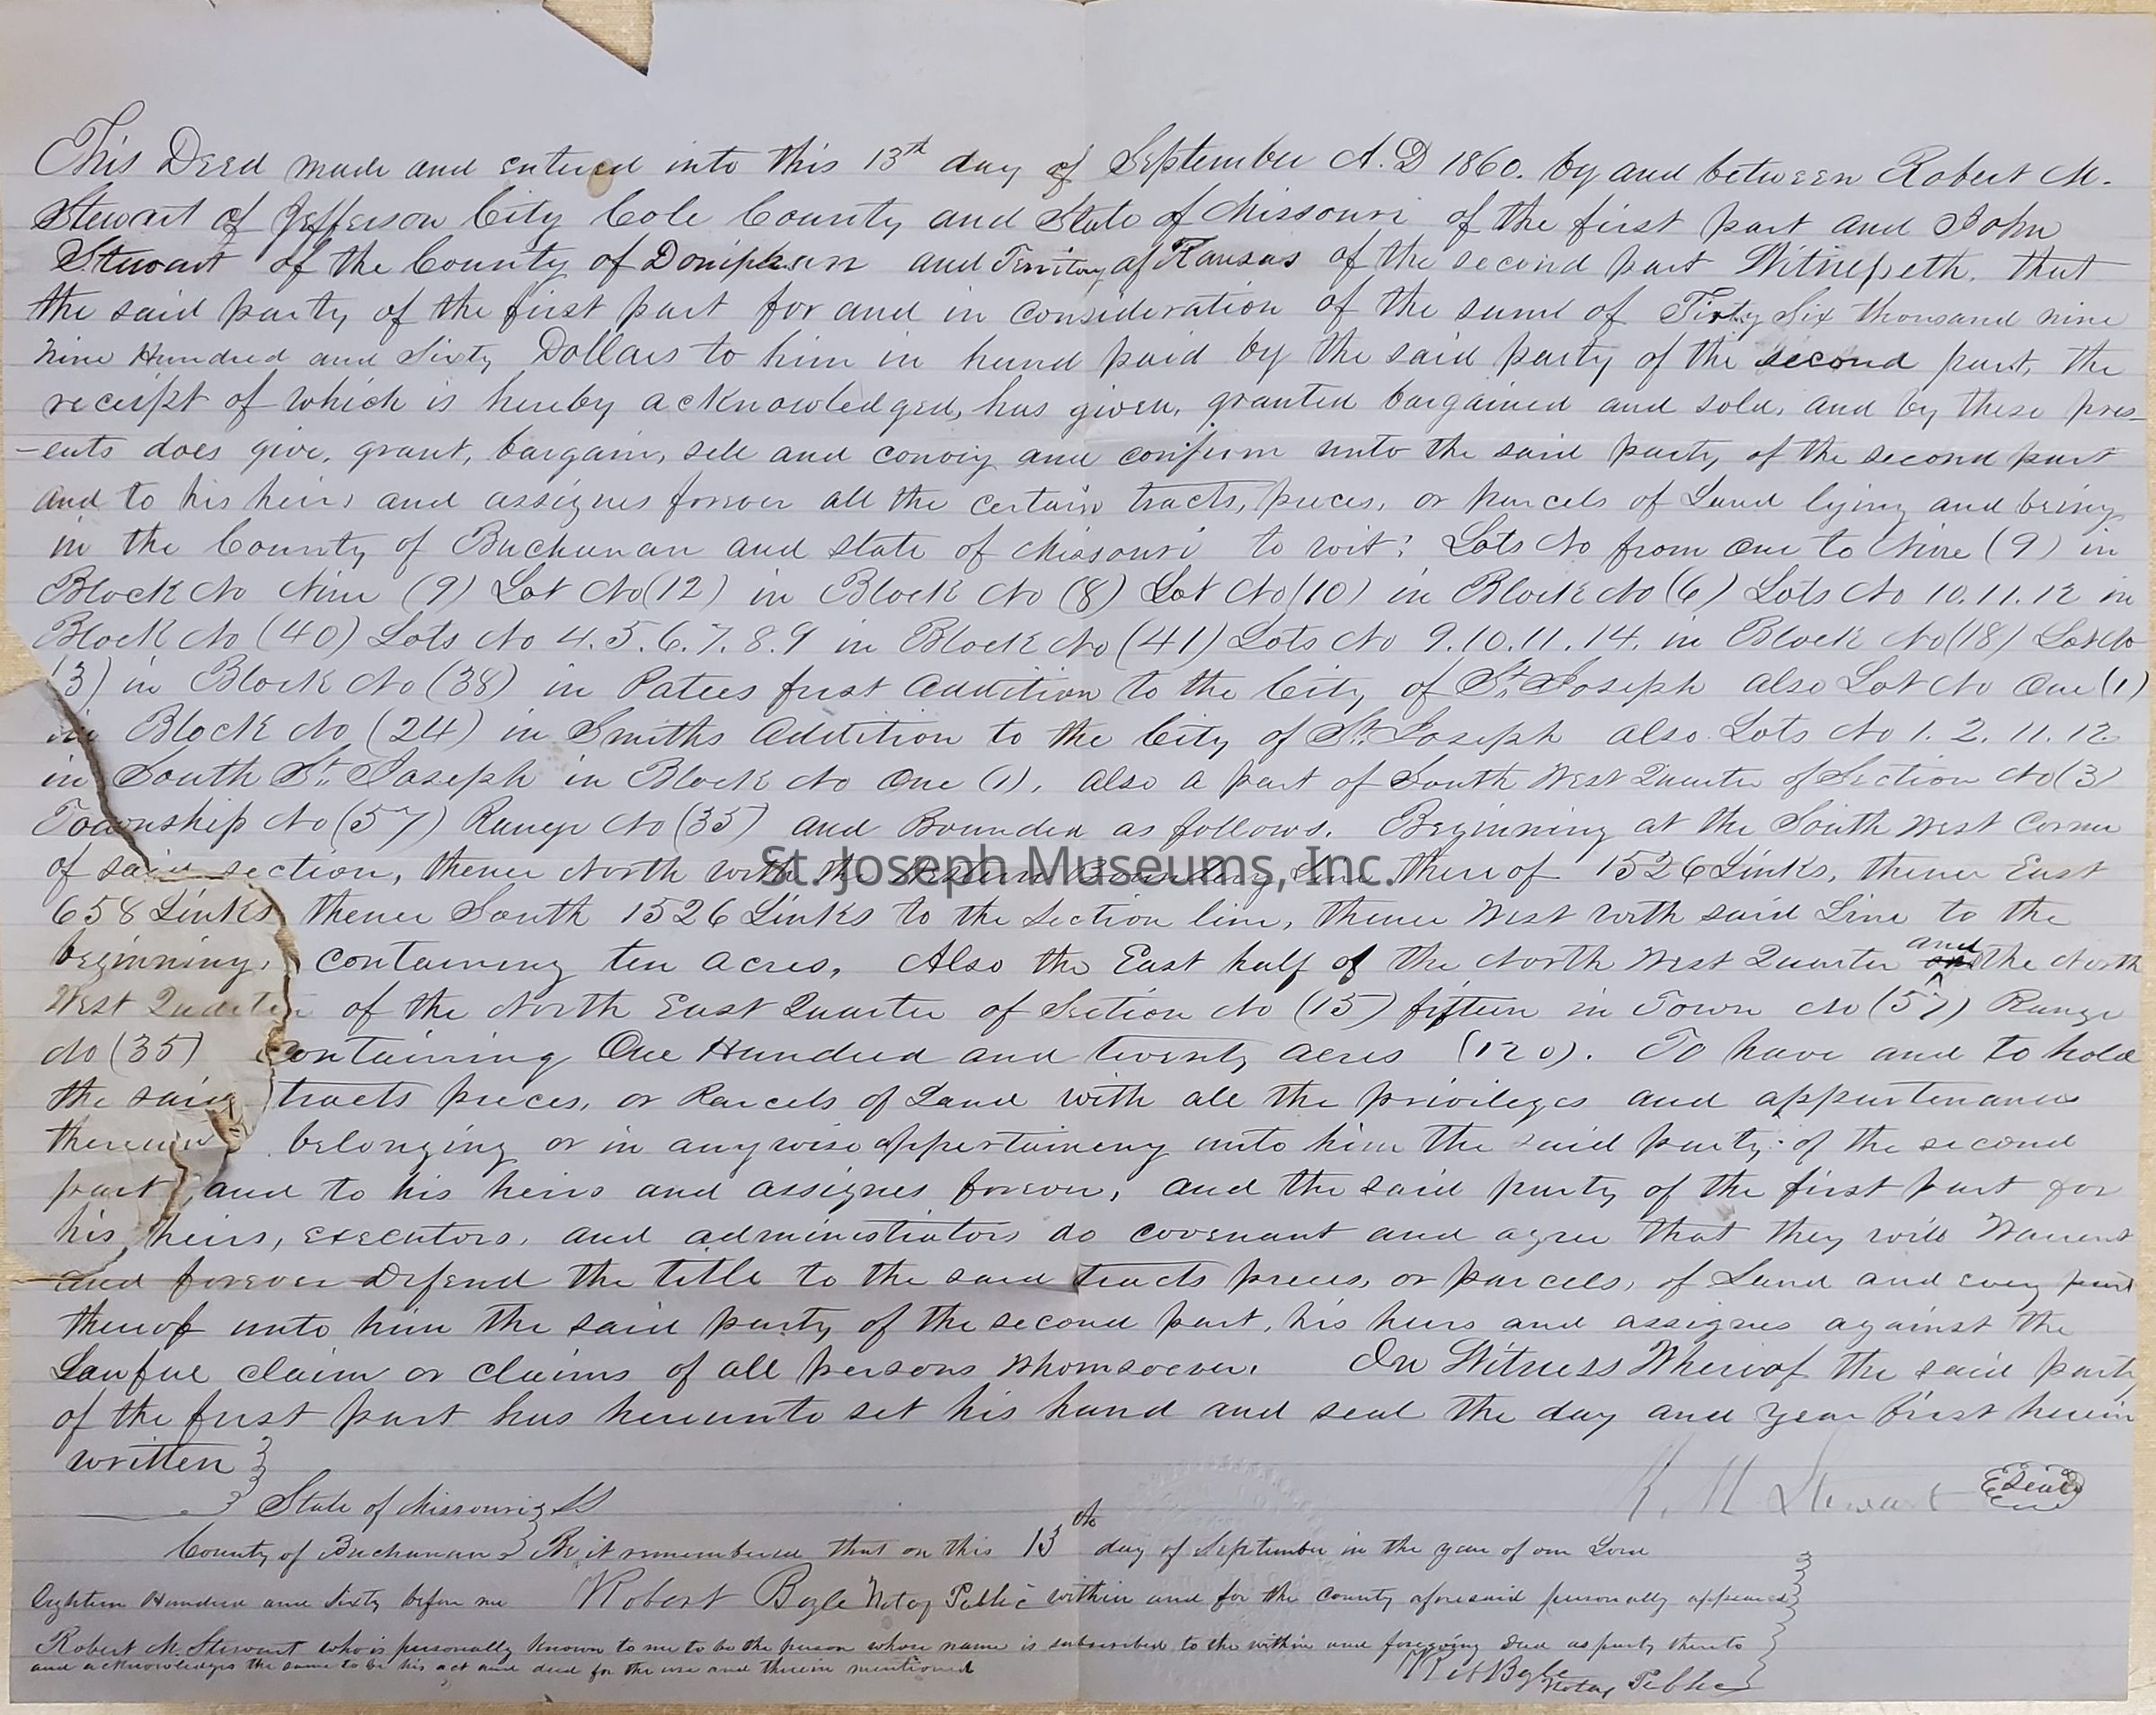 This Deed made and entered into this 13th day of September A.D 1860. by and between Robert M.
Stewart of Jefferson City Cole County and State of Missouri of the first part and John
Stewart of the County of Doniphan and Territory of Kansas of the second part Witnesseth. that
the said party of the first part for and in consideration of the sum of Six thousand nine
nine Hundred and Sixty Dollars to him in hand paid by the said party of the second part, the
receipt of which is hereby acknowledged, has given, granted bargained and sold, and by these pres-
-ents does give, grant, bargain, sell and convey and confirm unto the said party of the second part
and to his heirs and assignes forever all the certain tracts, pieces, or parcels of Land lying and being
in the County of Buchanan and state of Missouri to wit: Lots No from One to Nine (9) in
Block No Nine (9) Lot No (12) in Block No (8) Lot No (10) in Block No (6) Lots No 10.11.12 in
Block No (40) Lots No 4.5.6.7.8.9 in Block No (41) Lots No 9.10.11.14. in Block No (18) Lot No
(3) in Block No (38) in Patees first Addition to the City of St. Joseph also Lot No One (1)
in Block No (24) in Smiths Addition to the City of St. Joseph also Lots No 1. 2. 11. 12
in South St. Joseph in Block No One (1), also a part of South West Quarter of Section No (3)
Township No (57) Range No (35) and Bounded as follows. Beginning at the South West Corner
of said section, thence North with the Western Boundary Line thereof 1526 Links, thence East
St. Joseph Museums, Inc.
658 Links thence South 1526 Links to the Section line, thence West with said Line to the
beginning, containing ten acres, Also the East half of the North West Quarter and the North
West Quarter of the North East Quarter of Section No (15) fifteen in Town No (57) Range
No (35) Containing One Hundred and twenty acres (120). To have and to hold
the said tracts pieces, or Parcels of Land with all the privileges and appurtenances
thereunto belonging or in anywise appertaining unto him the said party of the second
part, and to his heirs and assignes forever, and the said party of the first part for
his heirs, executors, and administrators do covenant and agree that they will Warrent
and forever Defend the title to the said tracts pieces, or parcels, of Land and every part
thereof unto him the said party of the second part, his heirs and assignes against the
Lawful claim or claims of all persons whomsoever. In Witness Whereof the said party
of the first part has hereunto set his hand and seal the day and year first herein
written
R. M Stewart Seal
State of Missouri SS
County of Buchanan Be it remembered that on this 13th day of September in the year of our Lord
Eighteen Hundred and Sixty before me Robert Boyle Notary Public within and for the County aforesaid personally appeared
Robert M. Stewart who is personally known to me to be the person whose name is subscribed to the within and foregoing Deed as party thereto
and acknowledges the same to be his act and deed for the use and therein mentioned
Rob Boyle
Notary Public